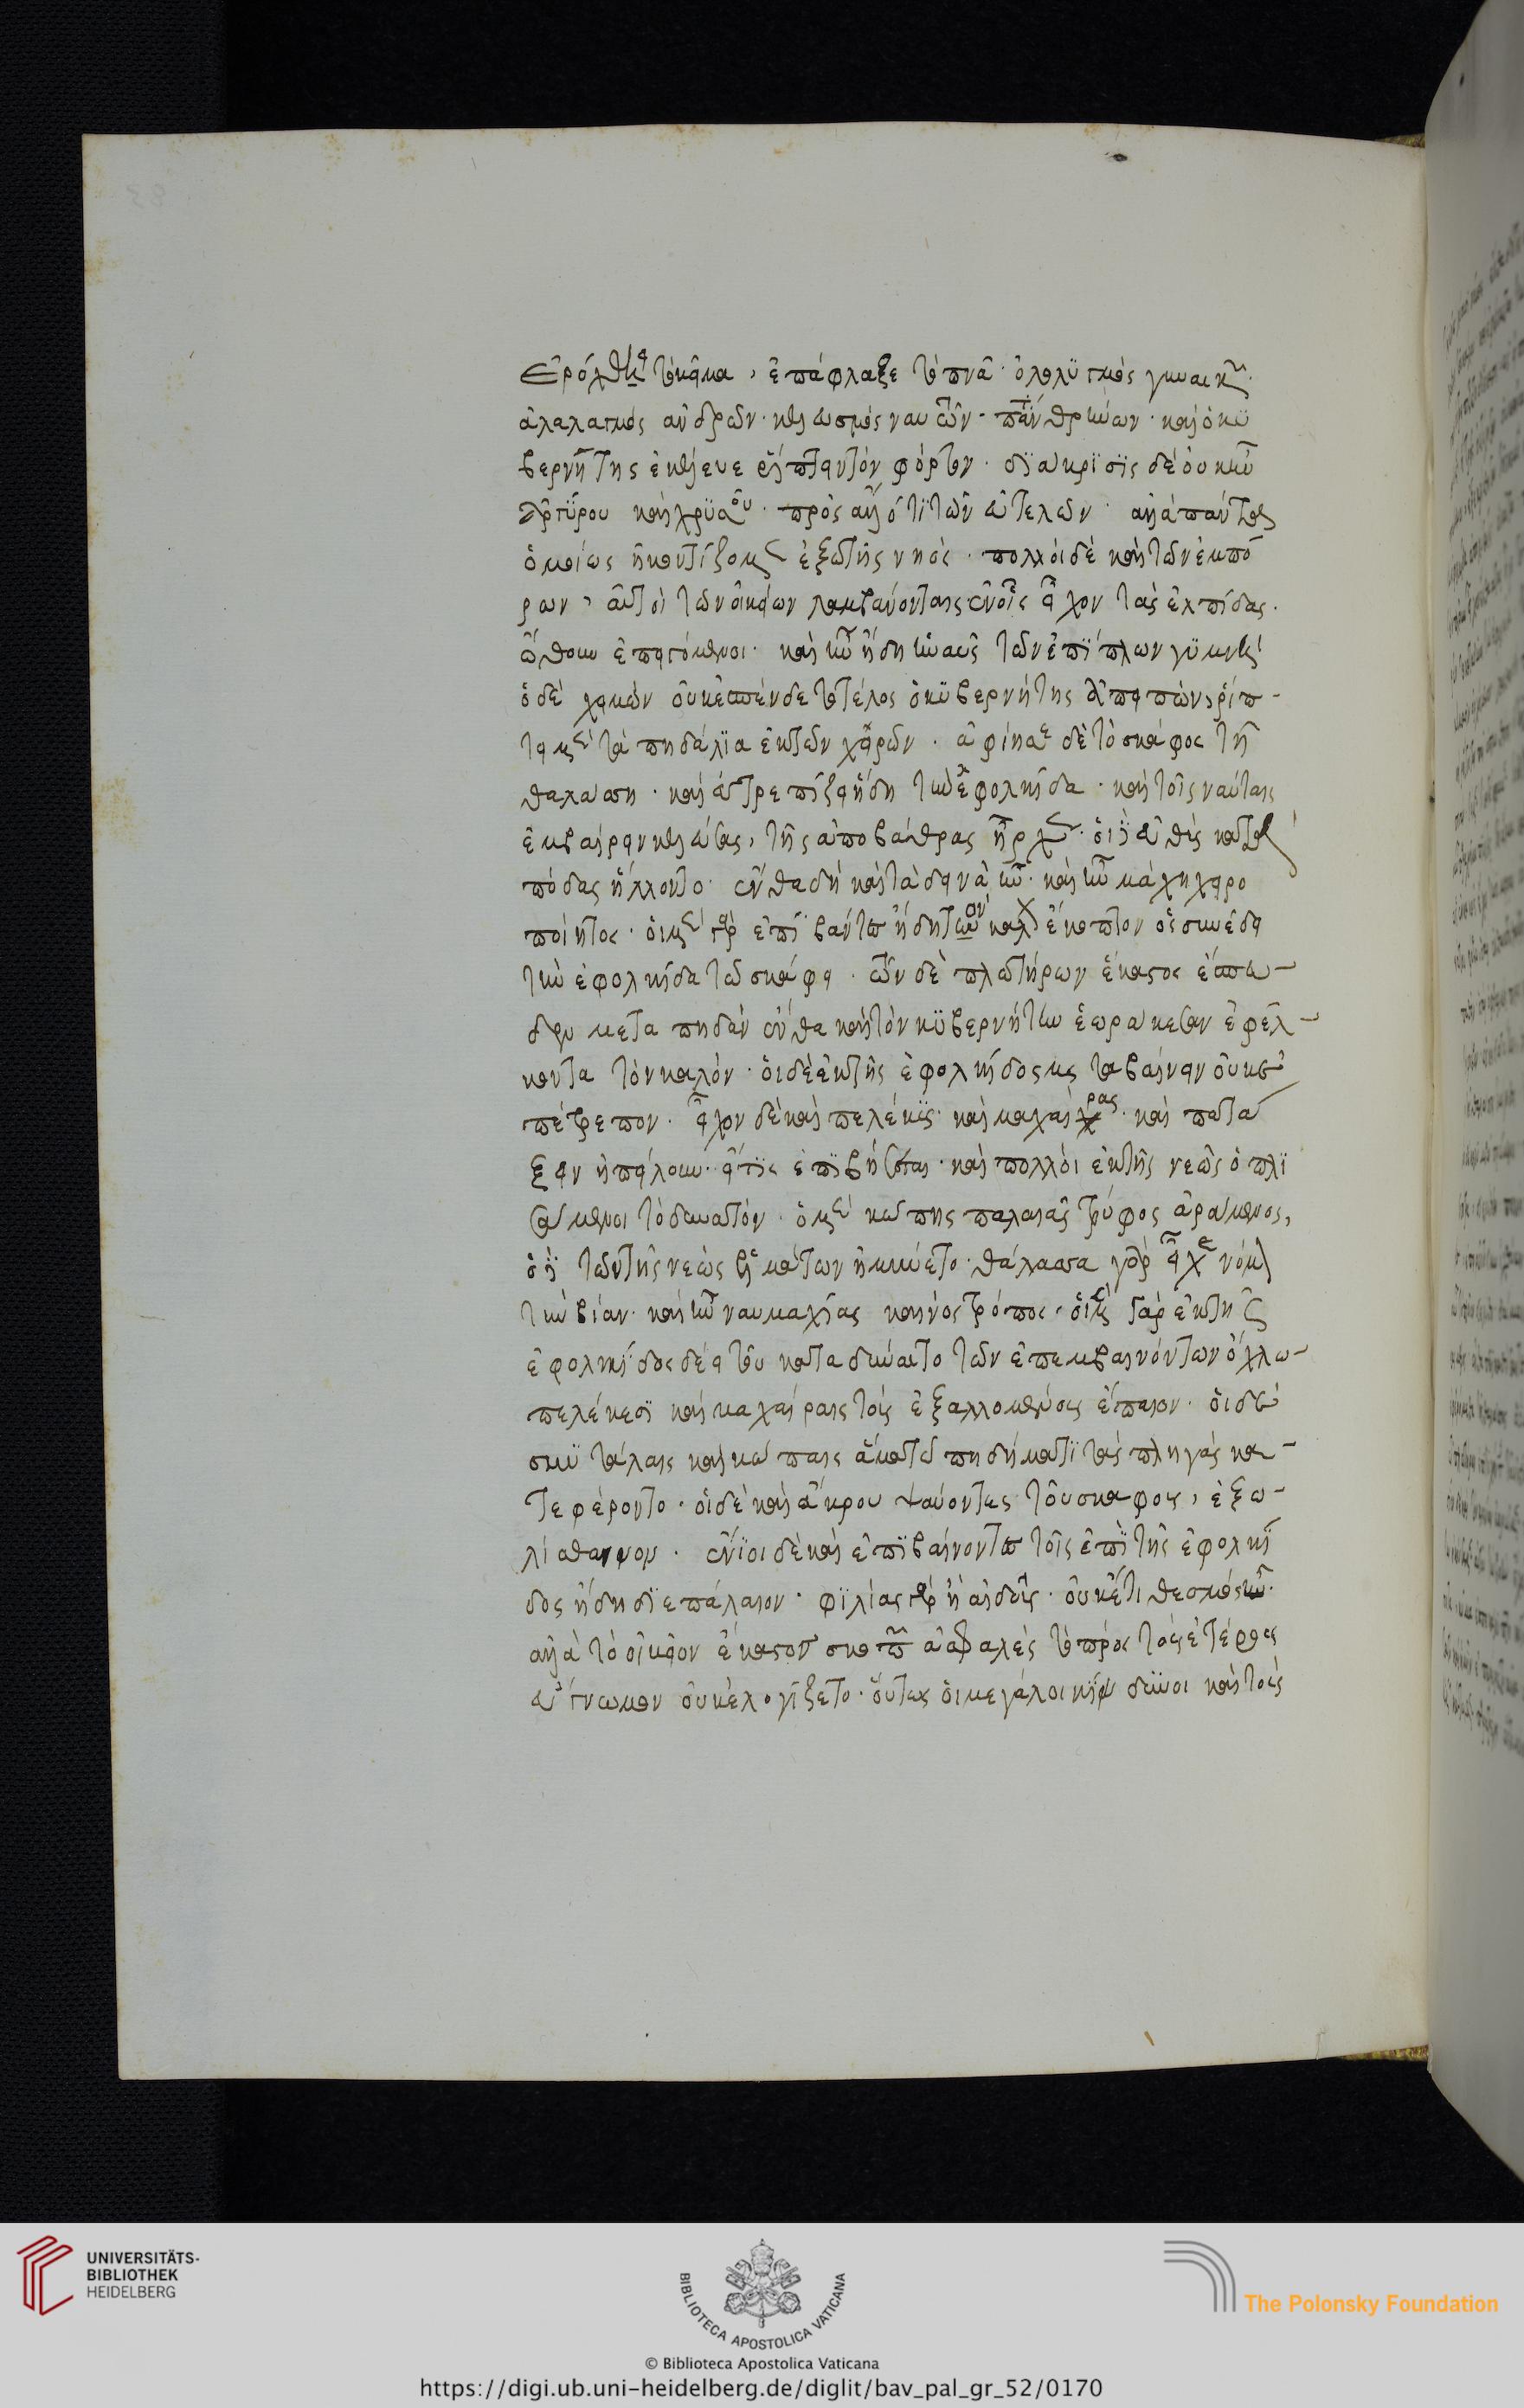 ἐρόχθει τὸ κῦμα, ἐπάφλαζε τὸ πνεῦμα· ὀλολυγμὸς γυναικῶν·
ἀλαλαγμὸς ἀνδρῶν· κελευσμὸς ναυτῶν· πάντα θρήνων· καὶ ὁ κυ
βερνήτης ἐκέλευε ῥίπτειν τὸν φόρτον· διάκρισις δὲ οὐκ ἦν
ἀργύρου καὶ χρυσοῦ· πρὸς ἄλλό τι τῶν εὐτελῶν· ἀλλὰ πάντες
ὁμοίως ἠκοντίζομεν ἔξω τῆς νηός· πολλοὶ δὲ καὶ τῶν ἐμπό
ρων, αὐτοὶ τῶν οἰκείων λαμβάνοντες ἐν οἷς εἶχον τὰς ἐλπίδας·
ὤθουν ἐπειγόμενοι· καὶ ἦν ἤδη ἡ ναῦς τῶν ἐπίπλων γυμνή·
ὁ δὲ χειμὼν οὐκ ἐσπένδετο τέλος ὁ κυβερνήτης ἀπειπών, ῥίπ-
τει μὲν τὰ πηδάλια ἐκ τῶν χειρῶν· ἀφίησι δὲ τὸ σκάφος τῇ
θαλάσσῃ· καὶ εὐτρεπίζει ἤδη τὴν ἐφολκίδα· καὶ τοῖς ναύταις
ἐμβαίνειν κελεύσας, τῆς ἀποβάθρας ἦρχεν· οἱ δ' εὐθὺς κατὰ
πόδας ἥλλοντο· ἔνθα δὴ καὶ τὰ δεινὰ ἦν· καὶ ἦν μάχη χειρο
ποίητος· οἱ μὲν γὰρ ἐπιβάντες ἤδη τὸν κάλων ἔκοπτον ὃς συνέδει
τὴν ἐφολκίδα τῷ σκάφει· τῶν δὲ πλωτήρων ἕκαστος ἔσπευ-
δεν μεταπηδᾶν ἔνθα καὶ τὸν κυβερνήτην ἑωράκεσαν ἐφέλ-
κοντα τὸν καλόν· οἱ δὲ ἐκ τῆς ἐφολκίδος μεταβαίνειν οὐκ ἐ
πέτρεπον· εἶχον δὲ καὶ πελέκεις· καὶ μαχαίρας· καὶ πατά
ξειν ἠπείλουν· εἴ τις ἐπιβήσεται· καὶ πολλοὶ ἐκ τῆς νεὼς ὁπλι
σάμενοι τὸ δυνατόν· ὁ μὲν κώπης παλαιᾶς τρύφος ἀράμενος,
ὁ δὲ τῶν τῆς νεὼς σελμάτων ἠμύνετο· θάλασσα γὰρ εἶχε νόμον
τὴν βίαν· καὶ ἦν ναυμαχίας καινὸς τρόπος· οἱ μὲν γὰρ ἐκ τῆς
ἐφολκίδος δέει τοῦ καταδύναι τῷ τῶν ἐπεμβαινόντων ὄχλω-
πελέκεσι καὶ μαχαίραις τοὺς ἐξαλλομένους ἔπαιον· οἱ δὲ
σκυτάλαις καὶ κώπαις ἅμα τῷ πηδήματι τὰς πληγὰς κα-
τεφέροντο· οἱ δὲ καὶ ἄκρου ψαύοντες τοῦ σκάφους, ἐξω-
λίσθαινον· ἔνιοι δὲ καὶ ἐπιβαίνοντες τοῖς ἐπὶ τῆς ἐφολκί
δος ἤδη διεπάλαιον· φιλίας γὰρ ἢ αἰδοῦς· οὐκέτι θεσμὸς ἦν·
ἀλλὰ τὸ οἰκεῖον ἕκαστον σκοπῶν ἀσφαλὲς τὸ πρὸς τοὺς ἑτέρους
εὔγνωμον οὐκ ἐλογίζετο· οὕτως οἱ μεγάλοι κίνδυνοι καὶ τοὺς
UNIVERSITÄTS-
BIBLIOTHEK
HEIDELBERG
BIBLIOTECA APOSTOLICA VATICANA
The Polonsky Foundation
© Biblioteca Apostolica Vaticana
https://digi.ub.uni-heidelberg.de/diglit/bav_pal_gr_52/0170